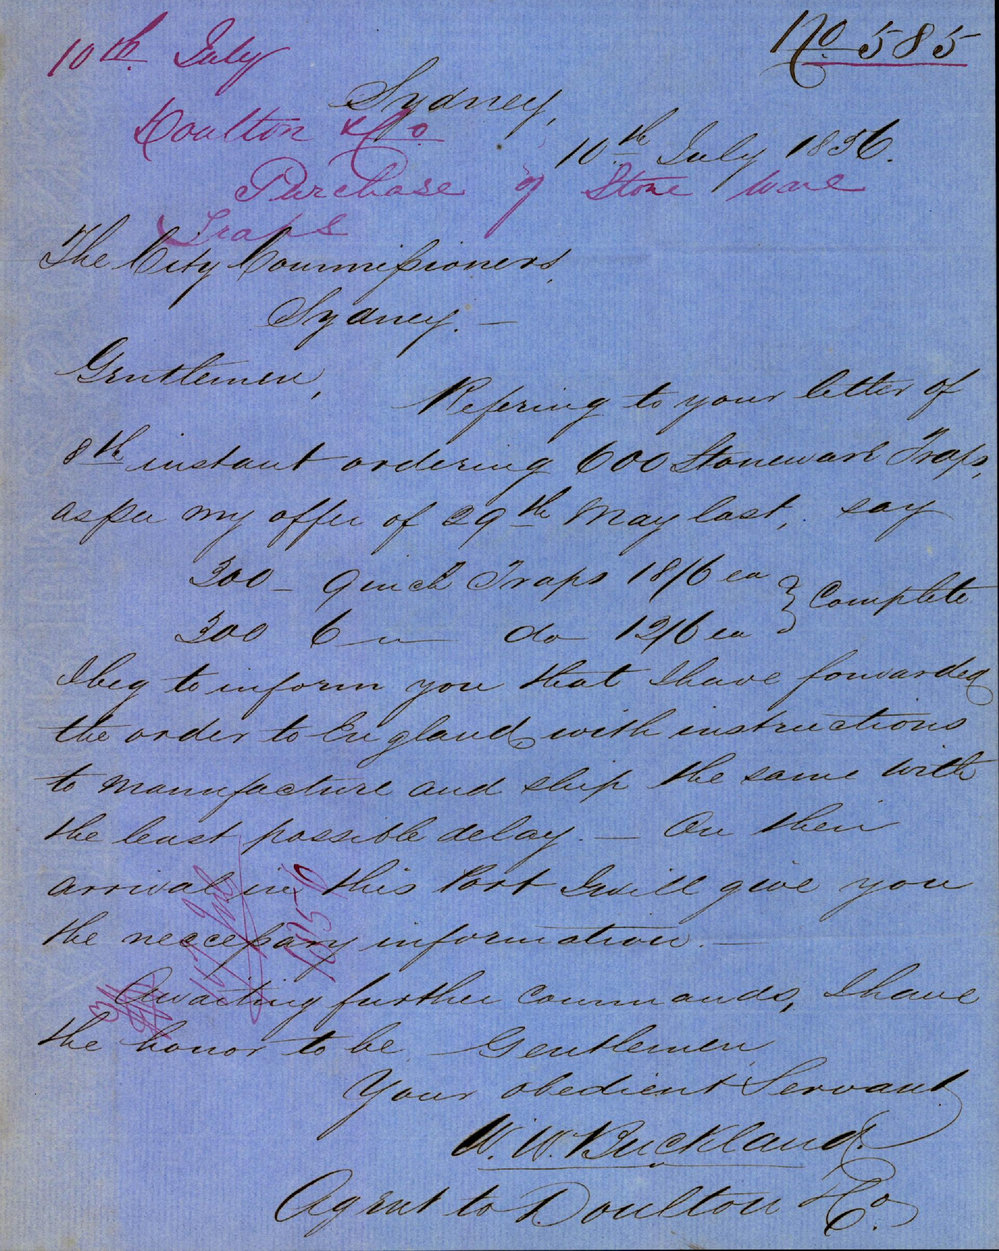 No 585
10th July
Doulton & Co.
Purchase of Stone ware
Traps
Sydney,
10th July 1856.
The City Commissioners,
Sydney. —
Gentlemen,
Refering to your letter of
8th instant ordering 600 Stoneware Traps,
as per my offer of 29th May last, say
300 — 9 inch Traps 18/6 ea } Complete
300 6 " — do 12/6 ea
I beg to inform you that I have forwarded
the order to England, with instructions
to manufacture and ship the same with
the least possible delay. — On their
arrival in this Port I will give you
the neccessary information. —
Awaiting further commands, I have
the honor to be Gentlemen
Your obedient Servant
W. W. Buckland.
Agent to Doulton & Co.